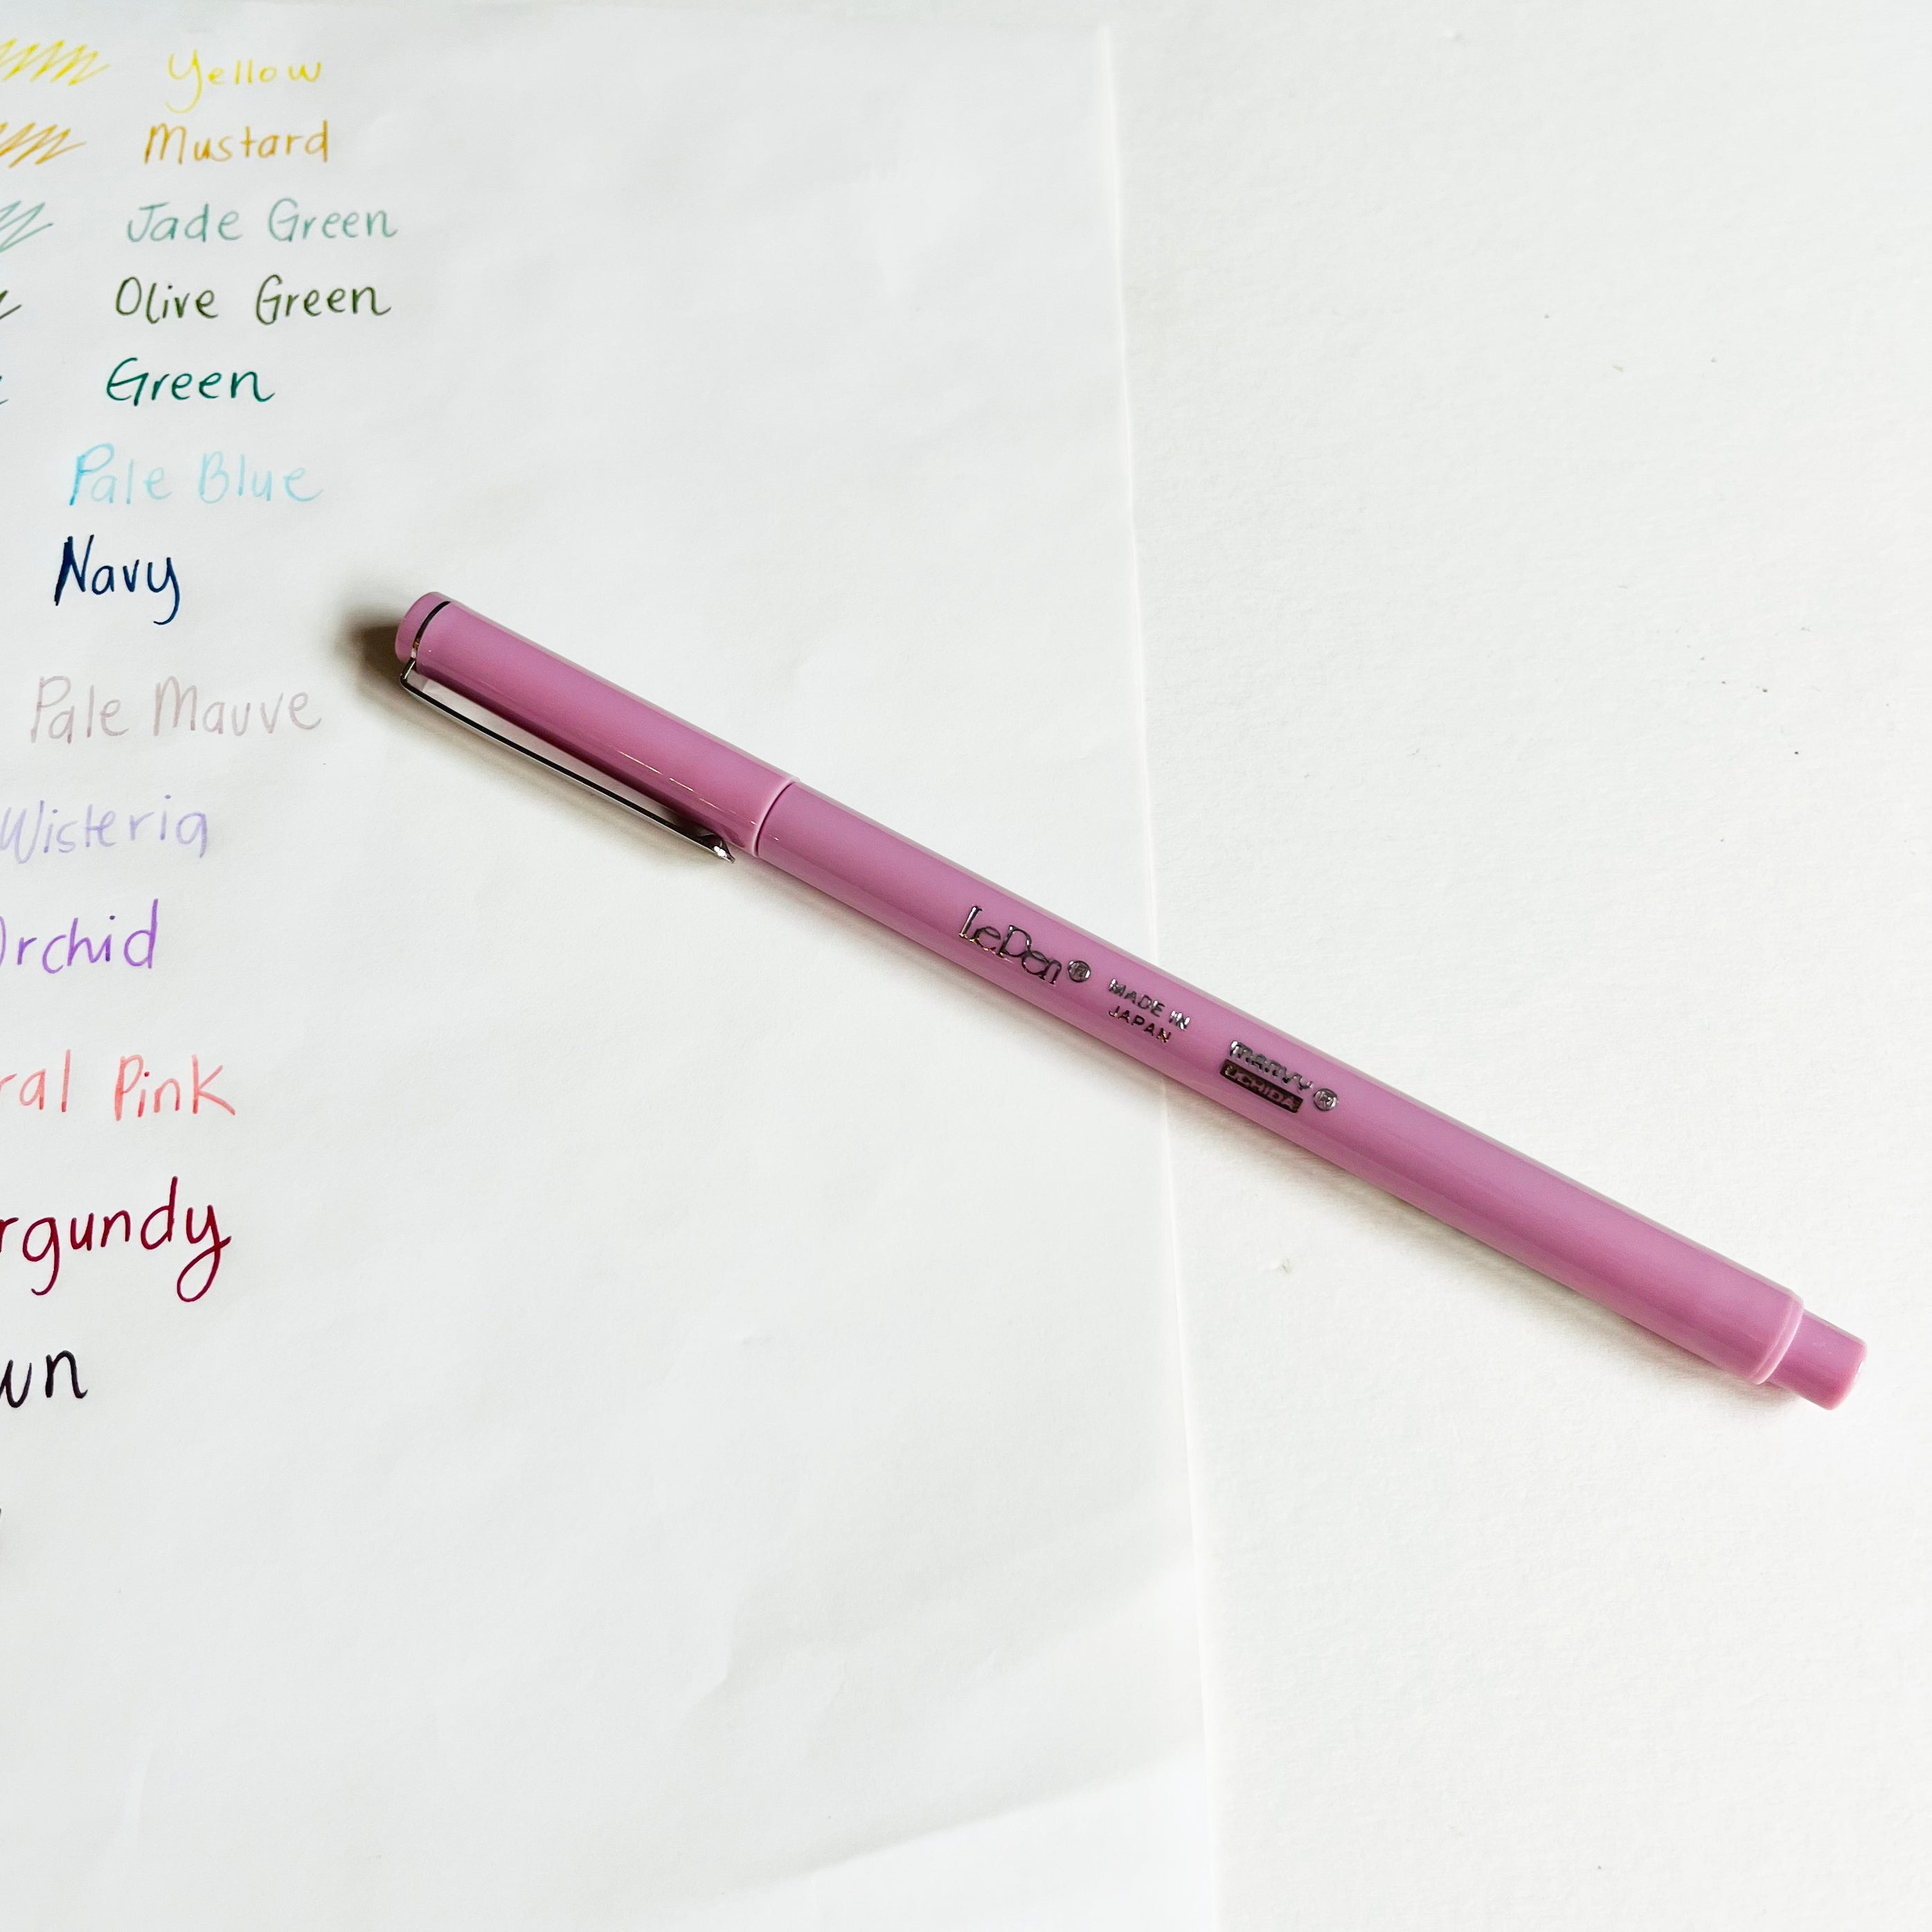 Yellow
Mustard
Jade Green
Olive Green
Green
Pale Blue
Navy
Pale Mauve
Wisteria
Orchid
ral Pink
rgundy
wn
LePen®
MADE IN
JAPAN
MARVY®
UCHIDA